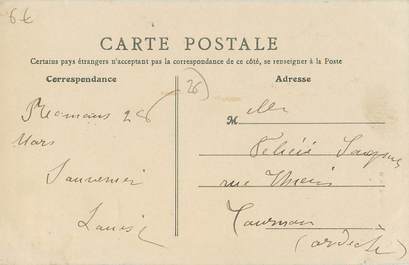 6€
CARTE POSTALE
Certains pays étrangers n'acceptant pas la correspondance de ce côté, se renseigner à la Poste
Correspondance
Adresse
26
Romans 28
Mars
Souvenir
M elle
Félicie
rue Thiers
Tournon
(ardèche)